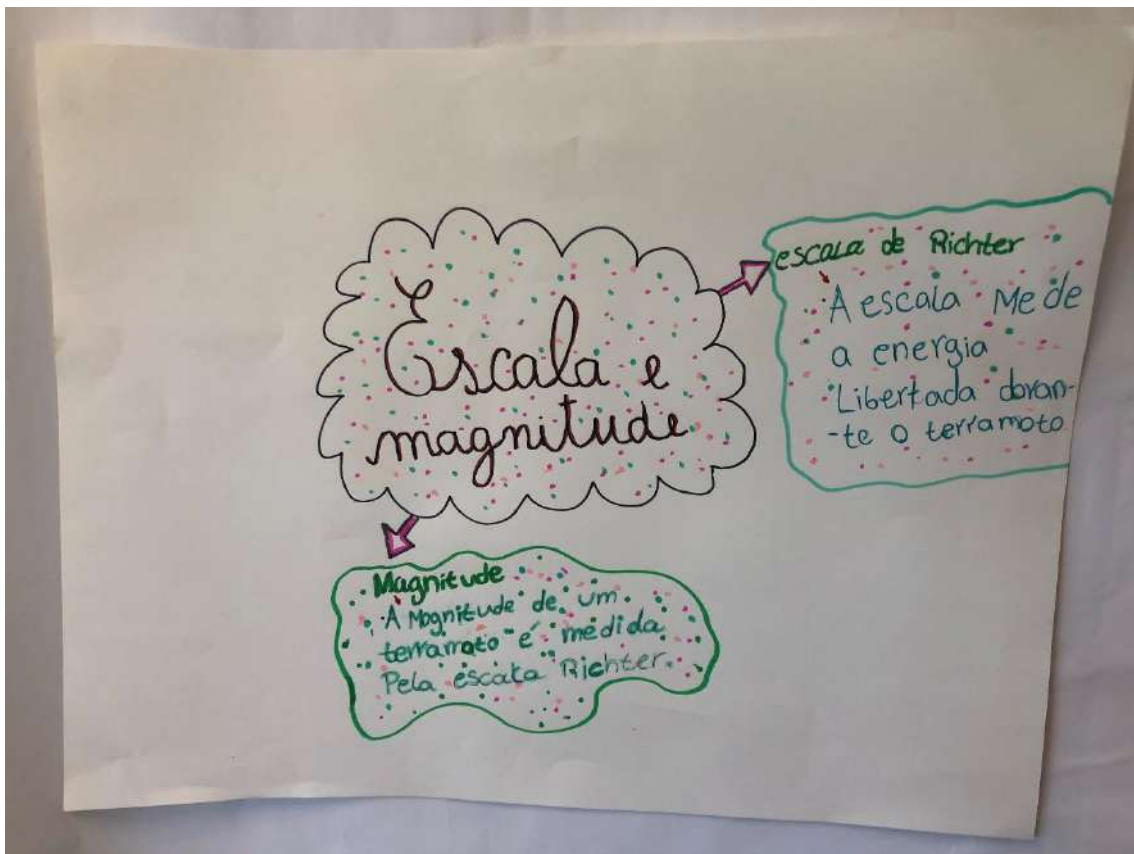 Escala e
magnitude
escala de Richter
A escala Mede
a energia
Libertada doran-
-te o terramoto
Magnitude
A Magnitude de um
terramoto é medida
Pela escala Richter.